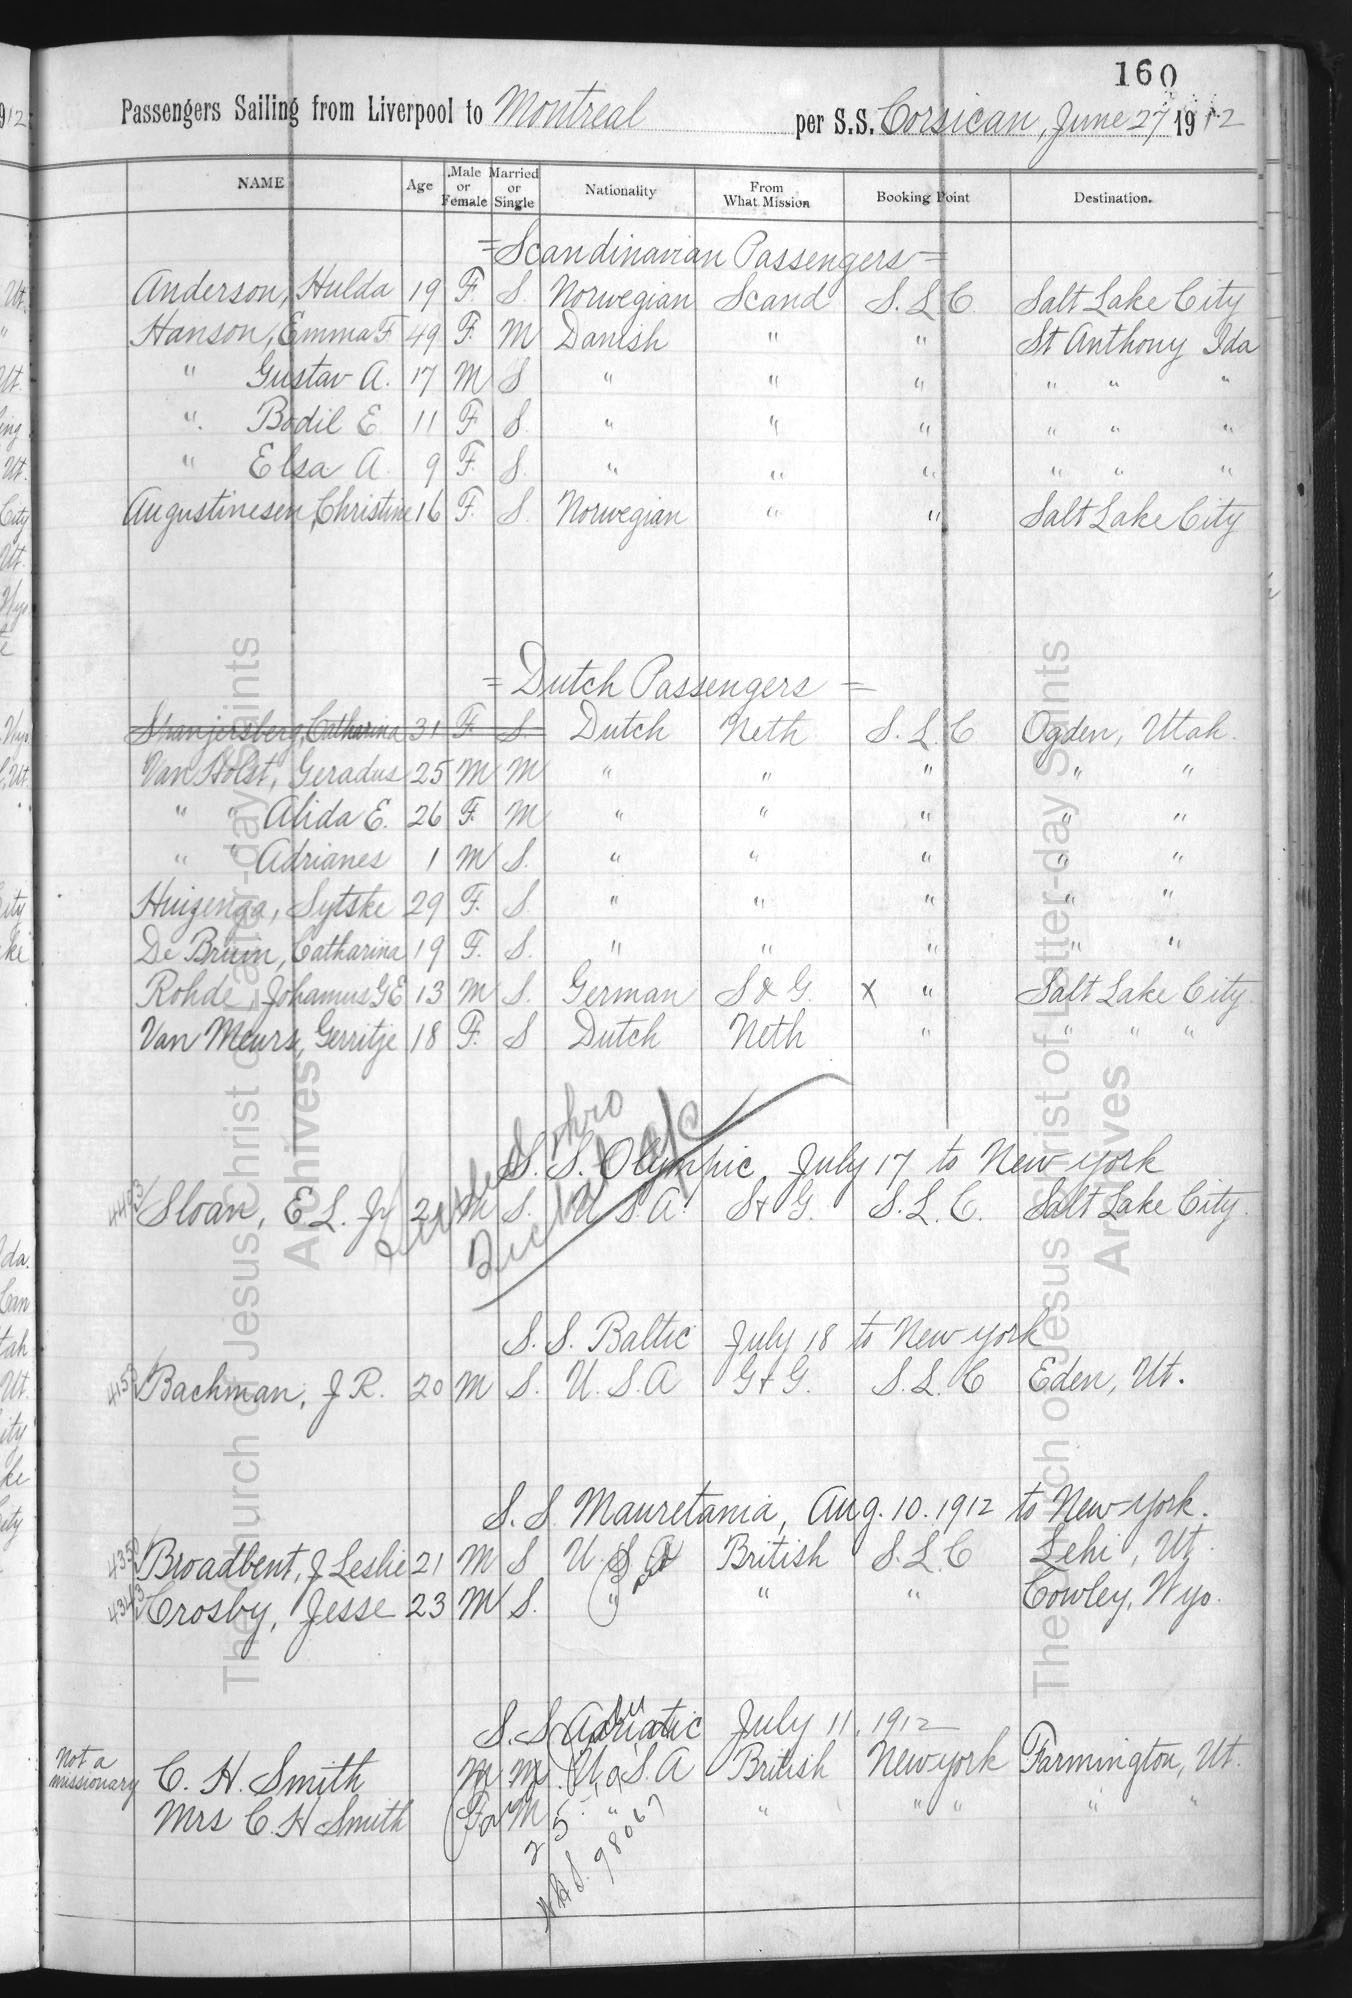 160
Passengers Sailing from Liverpool to Montreal per S.S. Corsican, June 27 1912
NAME Age Male or Female Married or Single Nationality From What Mission Booking Point Destination.
= Scandinavian Passengers =
Anderson, Hulda 19 F. S. Norwegian Scand S. L. C. Salt Lake City
Hanson, Emma F. 49 F. M Danish " " St Anthony Ida
" Gustav A. 17 M S " " " " " "
" Bodil E. 11 F S. " " " " " "
" Elsa A. 9 F. S. " " " " " "
Augustinesen, Christine 16 F. S. Norwegian " " Salt Lake City
= Dutch Passengers =
Catharina 31 F. S. Dutch Neth S. L. C Ogden, Utah.
Van Holst, Geradus 25 M M " " " " "
" " Alida E. 26 F. M " " " " "
" " Adrianes 1 M S. " " " " "
Huizenga, Sytske 29 F. S. " " " " "
De Bruin, Catharina 19 F. S. " " " " "
Rohde, Johannus G E 13 M S. German S & G. X " Salt Lake City.
Van Meurs, Gerritje 18 F. S Dutch Neth " " " "
S. S. Olympic, July 17 to New York
Sloan, E. L. Jr M S. U. S. A S & G. S. L. C. Salt Lake City.
S. S. Baltic July 18 to New York
Bachman, J R. 20 M S. U. S. A G & G. S. L. C Eden, Ut.
S. S. Mauretania, Aug. 10. 1912 to New York.
Broadbent, J Leslie 21 M S U. S. A British S. L. C Lehi, Ut.
Crosby, Jesse 23 M S. " " " Cowley, Wyo.
S. S. Adriatic July 11, 1912
Not a missionary C. H. Smith M M. U. S. A British New York Farmington, Ut.
Mrs C. H Smith F M " " " " " "
N.H.S. 98067
The Church of Jesus Christ of Latter-day Saints
Archives
The Church of Jesus Christ of Latter-day Saints
Archives